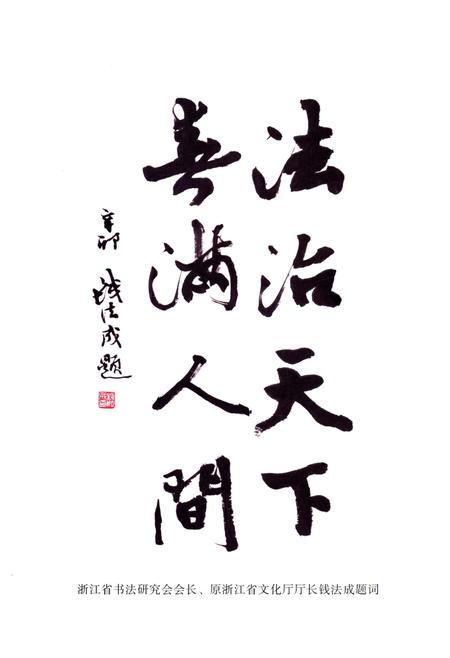 法治天下
善满人間
辛卯 钱法成题
浙江省书法研究会会长、原浙江省文化厅厅长钱法成题词